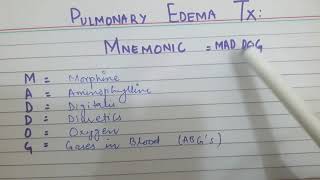 PULMONARY EDEMA TX:
MNEMONIC = MAD DOG
M = Morphine
A = Aminophylline
D = Digitalis
D = Diuretics
O = Oxygen
G = Gases in Blood (ABG's)